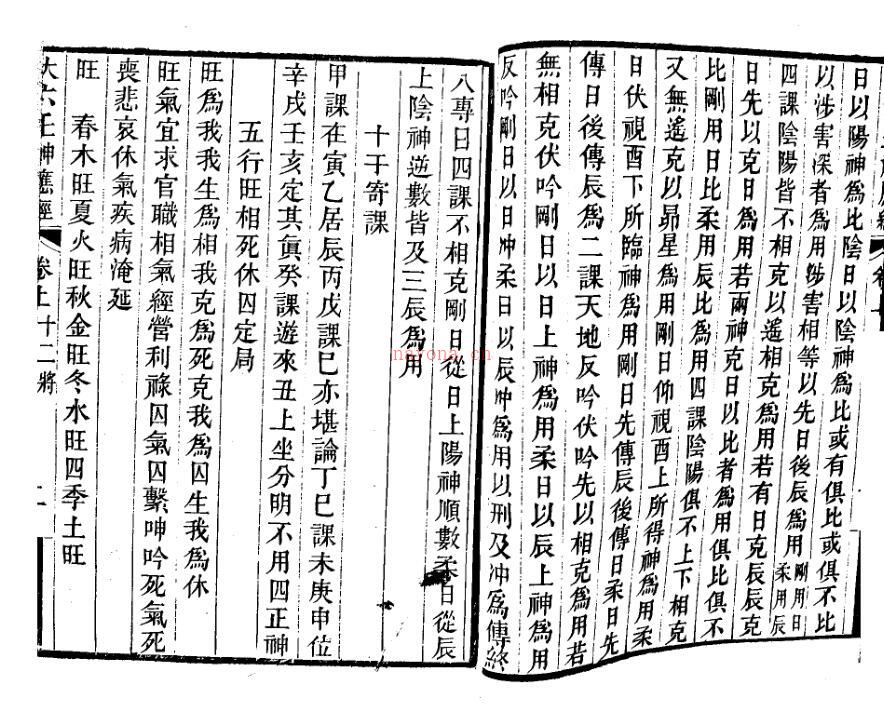 日以陽神爲比陰日以陰神爲比或有俱比或俱不比
以涉害深者爲用涉害相等以先日後辰爲用剛用日柔用辰
四課陰陽皆不相克以遙相克爲用若有日克辰辰克
日先以克日爲用若兩神克日以比者爲用俱比俱不
比剛用日比柔用辰比爲用四課陰陽俱不上下相克
又無遙克以昴星爲用剛日仰視酉上所得神爲用柔
日伏視酉下所臨神爲用剛日先傳辰後傳日柔日先
傳日後傳辰爲二課天地反吟伏吟先以相克爲用若
無相克伏吟剛日以日上神爲用柔日以辰上神爲用
反吟剛日以日冲柔日以辰冲爲用以刑及冲爲傳終
八專日四課不相克剛日從日上陽神順數柔日從辰
上陰神逆數皆及三辰爲用
十干寄課
甲課在寅乙居辰丙戊課巳亦堪論丁巳課未庚申位
辛戌壬亥定其眞癸課遊來丑上坐分明不用四正神
五行旺相死休囚定局
旺爲我我生爲相我克爲死克我爲囚生我爲休
旺氣宜求官職相氣經營利祿囚氣囚繫呻吟死氣死
喪悲哀休氣疾病淹延
旺 春木旺夏火旺秋金旺冬水旺四季土旺
大六壬神應經 卷上十二將 二
nayona.cn